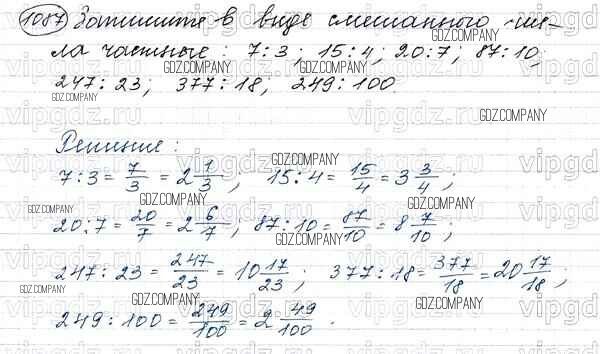 1087 Запишите в виде смешанного чис-
ла частные: 7:3; 15:4; 20:7; 87:10;
247:23; 377:18; 249:100.
Решение:
7:3 = 7/3 = 2 1/3; 15:4 = 15/4 = 3 3/4;
20:7 = 20/7 = 2 6/7; 87:10 = 87/10 = 8 7/10;
247:23 = 247/23 = 10 17/23; 377:18 = 377/18 = 20 17/18;
249:100 = 249/100 = 2 49/100.
GDZ.COMPANY
vipgdz.ru